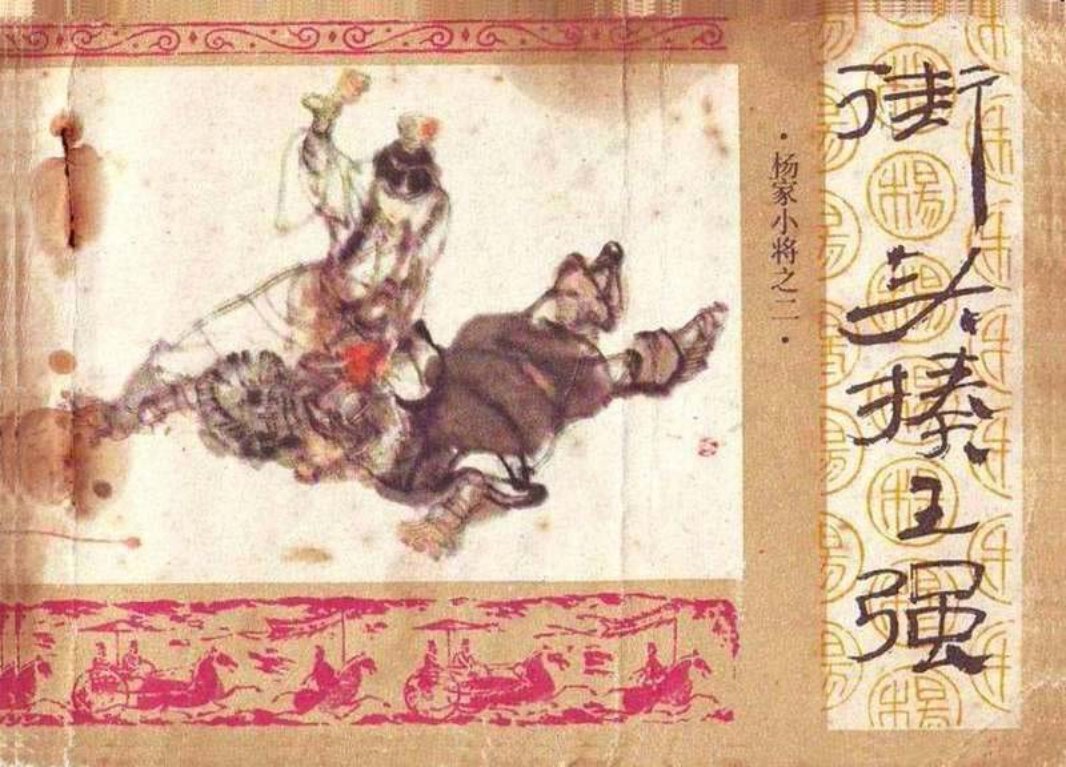 街头揍王强
·杨家小将之二·